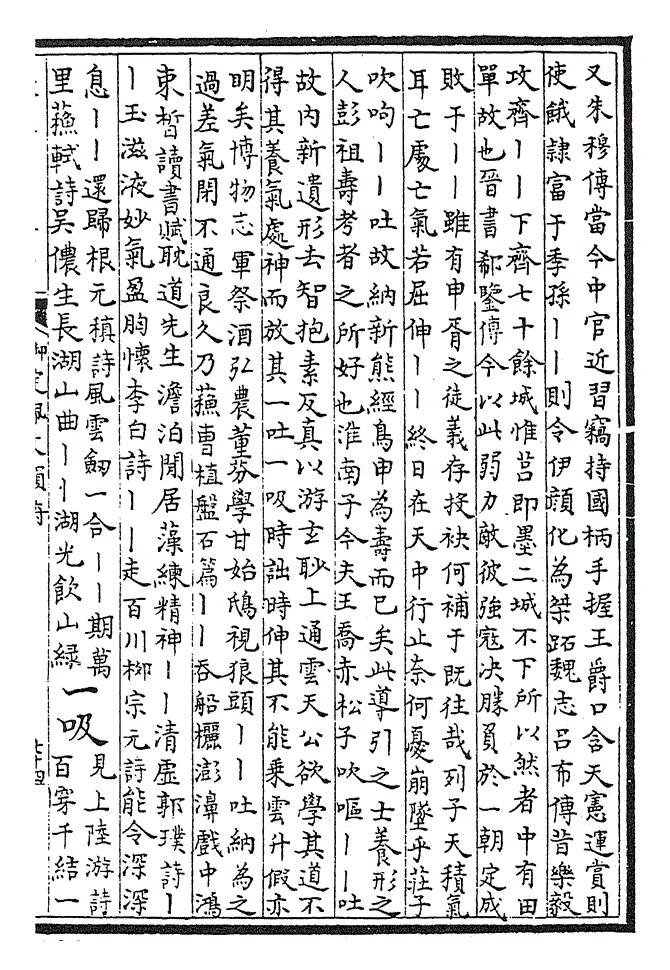 又朱穆傳當今中官近習竊持國柄手握王爵口含天憲運賞則
使餓隸富于季孫丨丨則令伊顔化為桀跖魏志吕布傳昔樂毅
攻齊丨丨下齊七十餘城惟莒即墨二城不下所以然者中有田
單故也晉書郗鑒傳今以此弱力敵彼強寇決勝負於一朝定成
敗于丨丨雖有申胥之徒義存投袂何補于既往哉列子天積氣
耳亡處亡氣若屈伸丨丨終日在天中行止奈何憂崩墜乎莊子
吹呴丨丨吐故納新熊經鳥申為壽而已矣此導引之士養形之
人彭祖壽考者之所好也淮南子今夫王喬赤松子吹嘔丨丨吐
故内新遺形去智抱素反真以游玄眇上通雲天公欲學其道不
得其養氣處神而放其一吐一吸時詘時伸其不能乘雲升假亦
明矣博物志軍祭酒弘農董芬學甘始鴟視狼頭丨丨吐納為之
過差氣閉不通良久乃蘓曹植盤石篇丨丨吞船欐澎濞戲中鴻
束晳讀書賦耽道先生澹泊閒居藻練精神丨丨清虚郭璞詩丨
丨玉滋液妙氣盈胸懷李白詩丨丨走百川柳宗元詩能令深深
息丨丨還歸根元稹詩風雲劒一合丨丨期萬
里蘓軾詩吳儂生長湖山曲丨丨湖光飲山綠
一吸
見上陸游詩
百穿千結一
御定佩文韻府
七十四